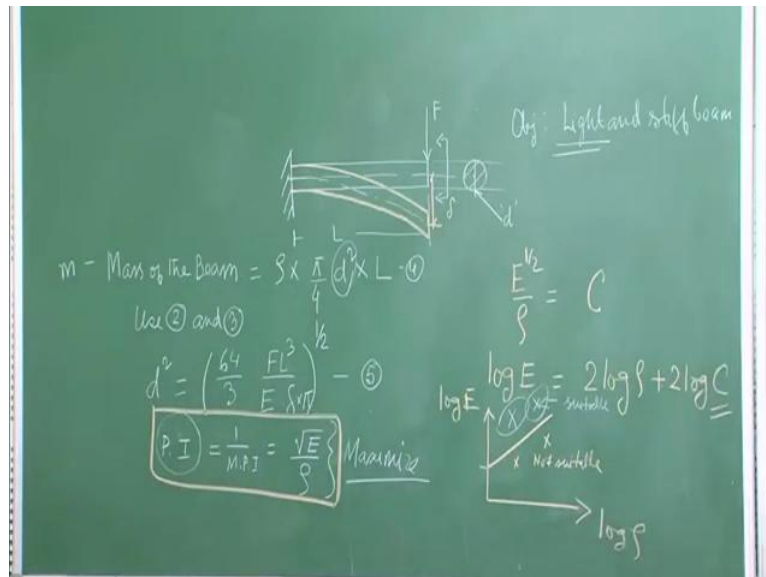 Obj: Light and stiff beam
F
δ
'd'
L
m - Mass of the Beam = ρ × π/4 d² × L - ④
Use ② and ③
d² = (64/3 FL³/E δ×π)^1/2 - ⑤
P.I = 1/M.P.I = √E/ρ } Maximize
E^1/2/ρ = C
log E = 2 log ρ + 2 log C
log E
X X suitable
x x Not suitable
log ρ